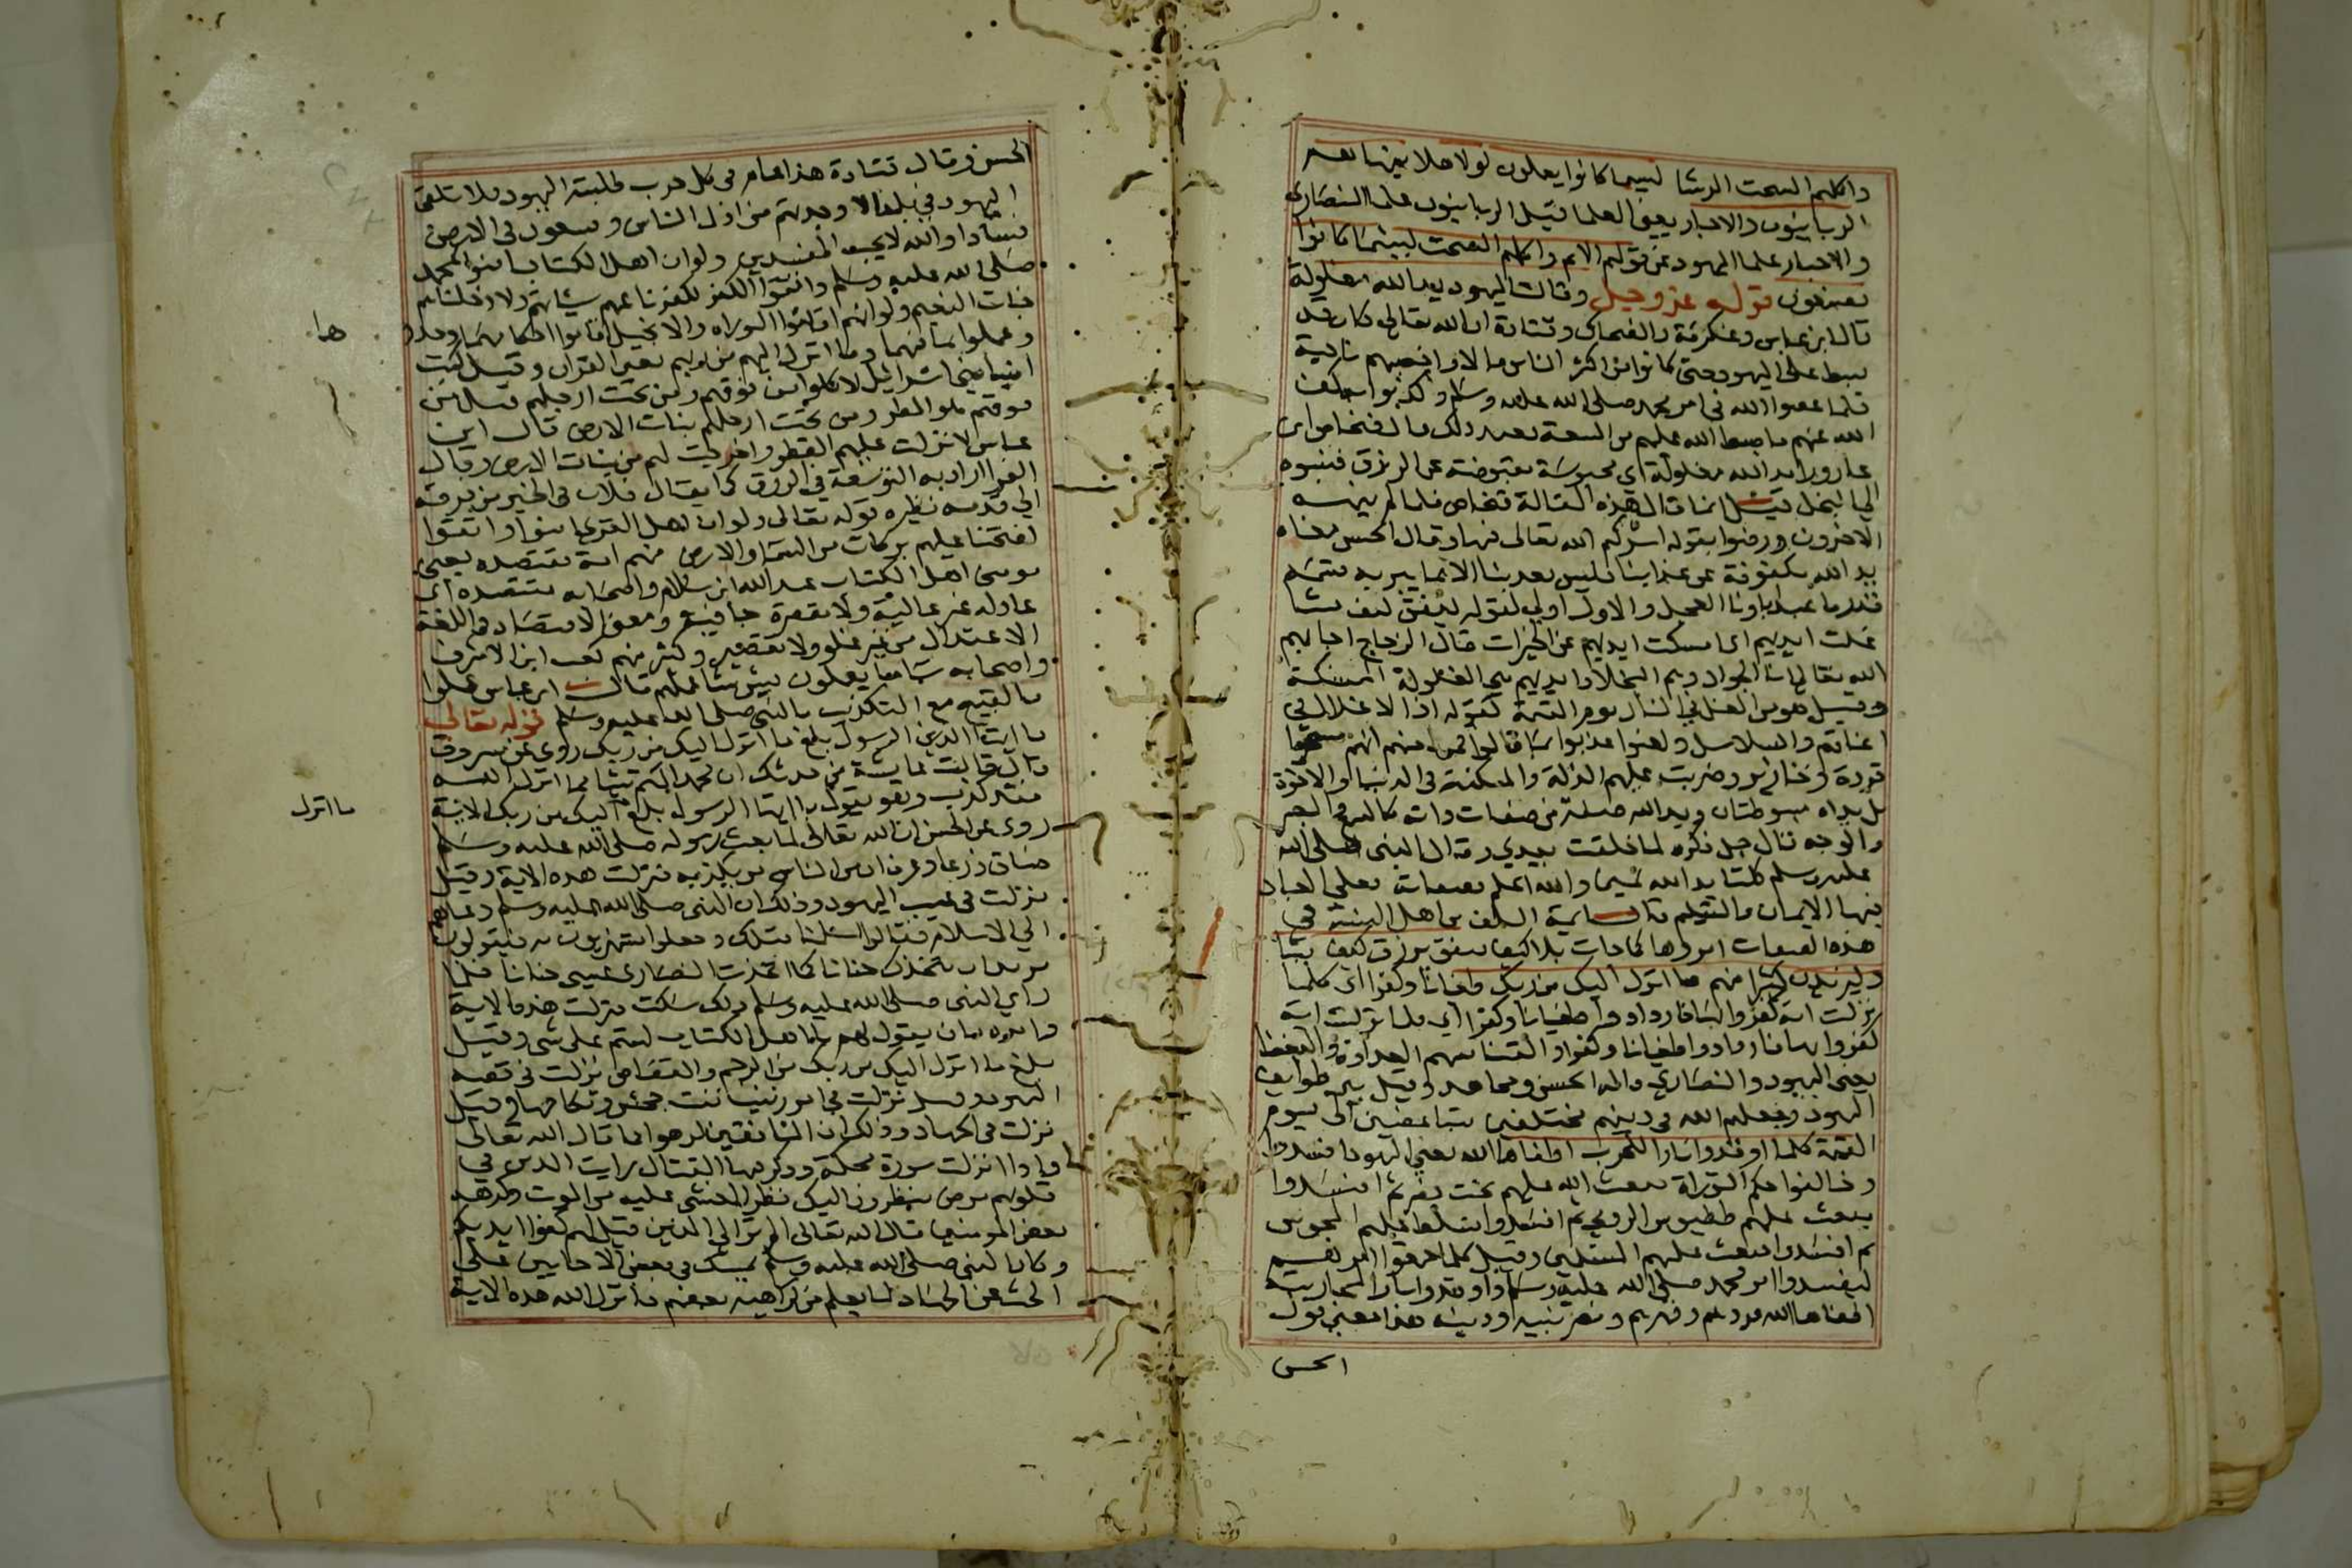 واكلهم السحت الرشا لبيس ما كانوا يعملون لولا هلا ينهاهم
الربانيون والاحبار يعني العلما قيل الربانيون علما النصارى
والاحبار علما اليهود عن قولهم الاثم واكلهم السحت لبيس ما كانوا
يصنعون قوله عز وجل وقالت اليهود يد الله مغلولة
قال ابن عباس وعكرمة والضحاك وقتادة ان الله تعالى كان قد
بسط على اليهود حتى كانوا من اكثر الناس مالا واخصبهم ناحية
فلما عصوا الله في امر محمد صلى الله عليه وسلم وكذبوا به كف
الله عنهم ما بسط الله عليهم من السعة فعند ذلك قال فنحاص ابن
عازورا يد الله مغلولة اي محبوسة مقبوضة عن الرزق فنسبوه
الي البخل قيل انما قال هذه المقالة فنحاص فلما لم ينهه
الاخرون ورضوا بقوله اشركهم الله تعالى فيها وقال الحسن معناه
يد الله مكفوفة عن عذابنا فليس يعذبنا الا بما يبر به قسمه
قدر ما عبد اباونا العجل والاول اولي لقوله ينفق كيف يشا
غلت ايديهم اي امسكت ايديهم عن الخيرات قال الزجاج اجابهم
الله تعالى انا الجواد وهم البخلا وايديهم هي المغلولة الممسكة
وقيل هو من الغل في النار يوم القيمة كقوله اذ الاغلال في
اعناقهم والسلاسل ولعنوا عذبوا بما قالوا فمن لعنهم انهم مسخوا
قردة وخنازير وضربت عليهم الذلة والمسكنة في الدنيا والاخرة
بل يداه مبسوطتان ويد الله صفة من صفات ذاته كالسمع والبصر
والوجه قال جل ذكره لما خلقت بيدي وقال النبي صلى الله
عليه وسلم كلتا يديه يمين والله اعلم بصفاته فعلى العباد
فيها الايمان والتسليم قال ايمة السلف من اهل السنة في
هذه الصفات امروها كما جات بلا كيف ينفق يرزق كيف يشا
وليزيدن كثيرا منهم ما انزل اليك من ربك طغيانا وكفرا اي كلما
نزلت اية كفروا بها فازدادوا طغيانا وكفرا اي كلما نزلت اية
كفروا بها فازدادوا طغيانا وكفرا والقينا بينهم العداوة والبغضا
يعني اليهود والنصارى قاله الحسن ومجاهد وقيل بين طوايف
اليهود وجعلهم الله في دينهم مختلفين متباغضين الى يوم
القيمة كلما اوقدوا نارا للحرب اطفاها الله يعني اليهود افسدوا
وخالفوا حكم التوراة فبعث الله عليهم بخت نصر ثم افسدوا
فبعث عليهم ططيوس الرومي ثم افسدوا فسلط عليهم المجوس
ثم افسدوا فبعث عليهم المسلمين وقيل كلما اجمعوا امرهم
ليفسدوا امر محمد صلى الله عليه وسلم واوقدوا نار المحاربة
اطفاها الله فردهم وقهرهم ونصر نبيه ودينه هذا معنى قول
الحسن
الحسن وقال قتادة هذا عام في كل حرب طلبته اليهود فلا تلقى
اليهود في بلد الا وجدتهم من اذل الناس ويسعون في الارض
فسادا والله لا يحب المفسدين ولو ان اهل الكتاب امنوا بمحمد
صلى الله عليه وسلم واتقوا الكفر لكفرنا عنهم سياتهم ولادخلناهم
جنات النعيم ولو انهم اقاموا التوراه والانجيل اقاموا احكامهما وحدودهما
وعملوا بما فيهما وما انزل اليهم من ربهم يعني القران وقيل كتب
هما
انبيا بني اسرائيل لاكلوا من فوقهم ومن تحت ارجلهم قيل من
فوقهم هو المطر ومن تحت ارجلهم نبات الارض قال ابن
عباس لانزلت عليهم القطر واخرجت لهم من نبات الارض وقال
الفرا اراد به التوسعة في الرزق كما يقال فلان في الخير من فرقه
الي قدمه نظيره قوله تعالى ولو ان اهل القرى امنوا واتقوا
لفتحنا عليهم بركات من السما والارض منهم امة مقتصدة يعني
مومني اهل الكتاب عبد الله ابن سلام واصحابه مقتصدة اي
عادله غير غالية ولا مقصرة جافية ومعنى الاقتصاد في اللغة
الاعتدال من غير غلو ولا تقصير وكثير منهم كعب ابن الاشرف
واصحابه سا ما يعملون بيس شيا عملهم قال ابن عباس عملوا
بالقبيح مع التكذيب بالنبي صلى الله عليه وسلم قوله تعالى
يا ايها الذين الرسول بلغ ما انزل اليك من ربك روي عن مسروق
قال قالت عايشة من حدثك ان محمدا كتم شيا مما انزل الله
فقد كذب وهو يقول يا ايها الرسول بلغ اليك من ربك الاية
ما انزل
روي عن الحسن ان الله تعالى لما بعث رسوله صلى الله عليه وسلم
ضاق ذرعا وعرف ان من الناس من يكذبه فنزلت هذه الاية وقيل
نزلت في عيب اليهود وذلك ان النبي صلى الله عليه وسلم دعاهم
الي الاسلام فقالوا اسلمنا قبلك وجعلوا يستهزيون به فيقولون
تريد ان نتخذك حنانا كما اتخذت النصارى عيسى حنانا فلما
راي النبي صلى الله عليه وسلم ذلك سكت فنزلت هذه الاية
وامره بان يقول لهم يا اهل الكتاب لستم على شي وقيل
بلغ ما انزل اليك من ربك من الرجم والقصاص نزلت في قصة
اليهود وقيل نزلت في امر زينب بنت جحش ونكاحها وقيل
نزلت في الجهاد وذلك ان المنافقين كرهوا كما قال الله تعالى
فاذا انزلت سورة محكمة وذكر فيها القتال رايت الذين في
قلوبهم مرض ينظرون اليك نظر المغشي عليه من الموت وكرهه
بعض المومنين قال الله تعالى الم تر الي الذين قيل لهم كفوا ايديكم
وكان النبي صلى الله عليه وسلم يمسك في بعض الاحايين على
الحث عن الجهاد لما يعلم من كراهية بعضهم فانزل الله هذه الاية